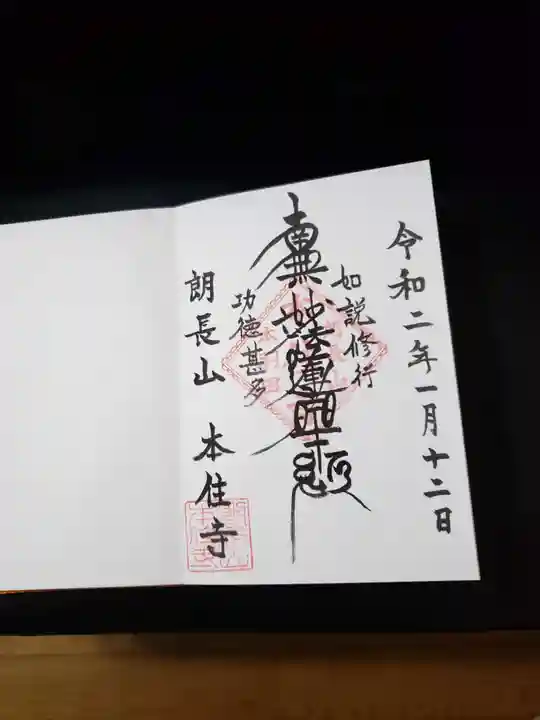 令和二年一月十二日
如説修行
南無妙法蓮華経
功徳甚多
朗長山 本住寺